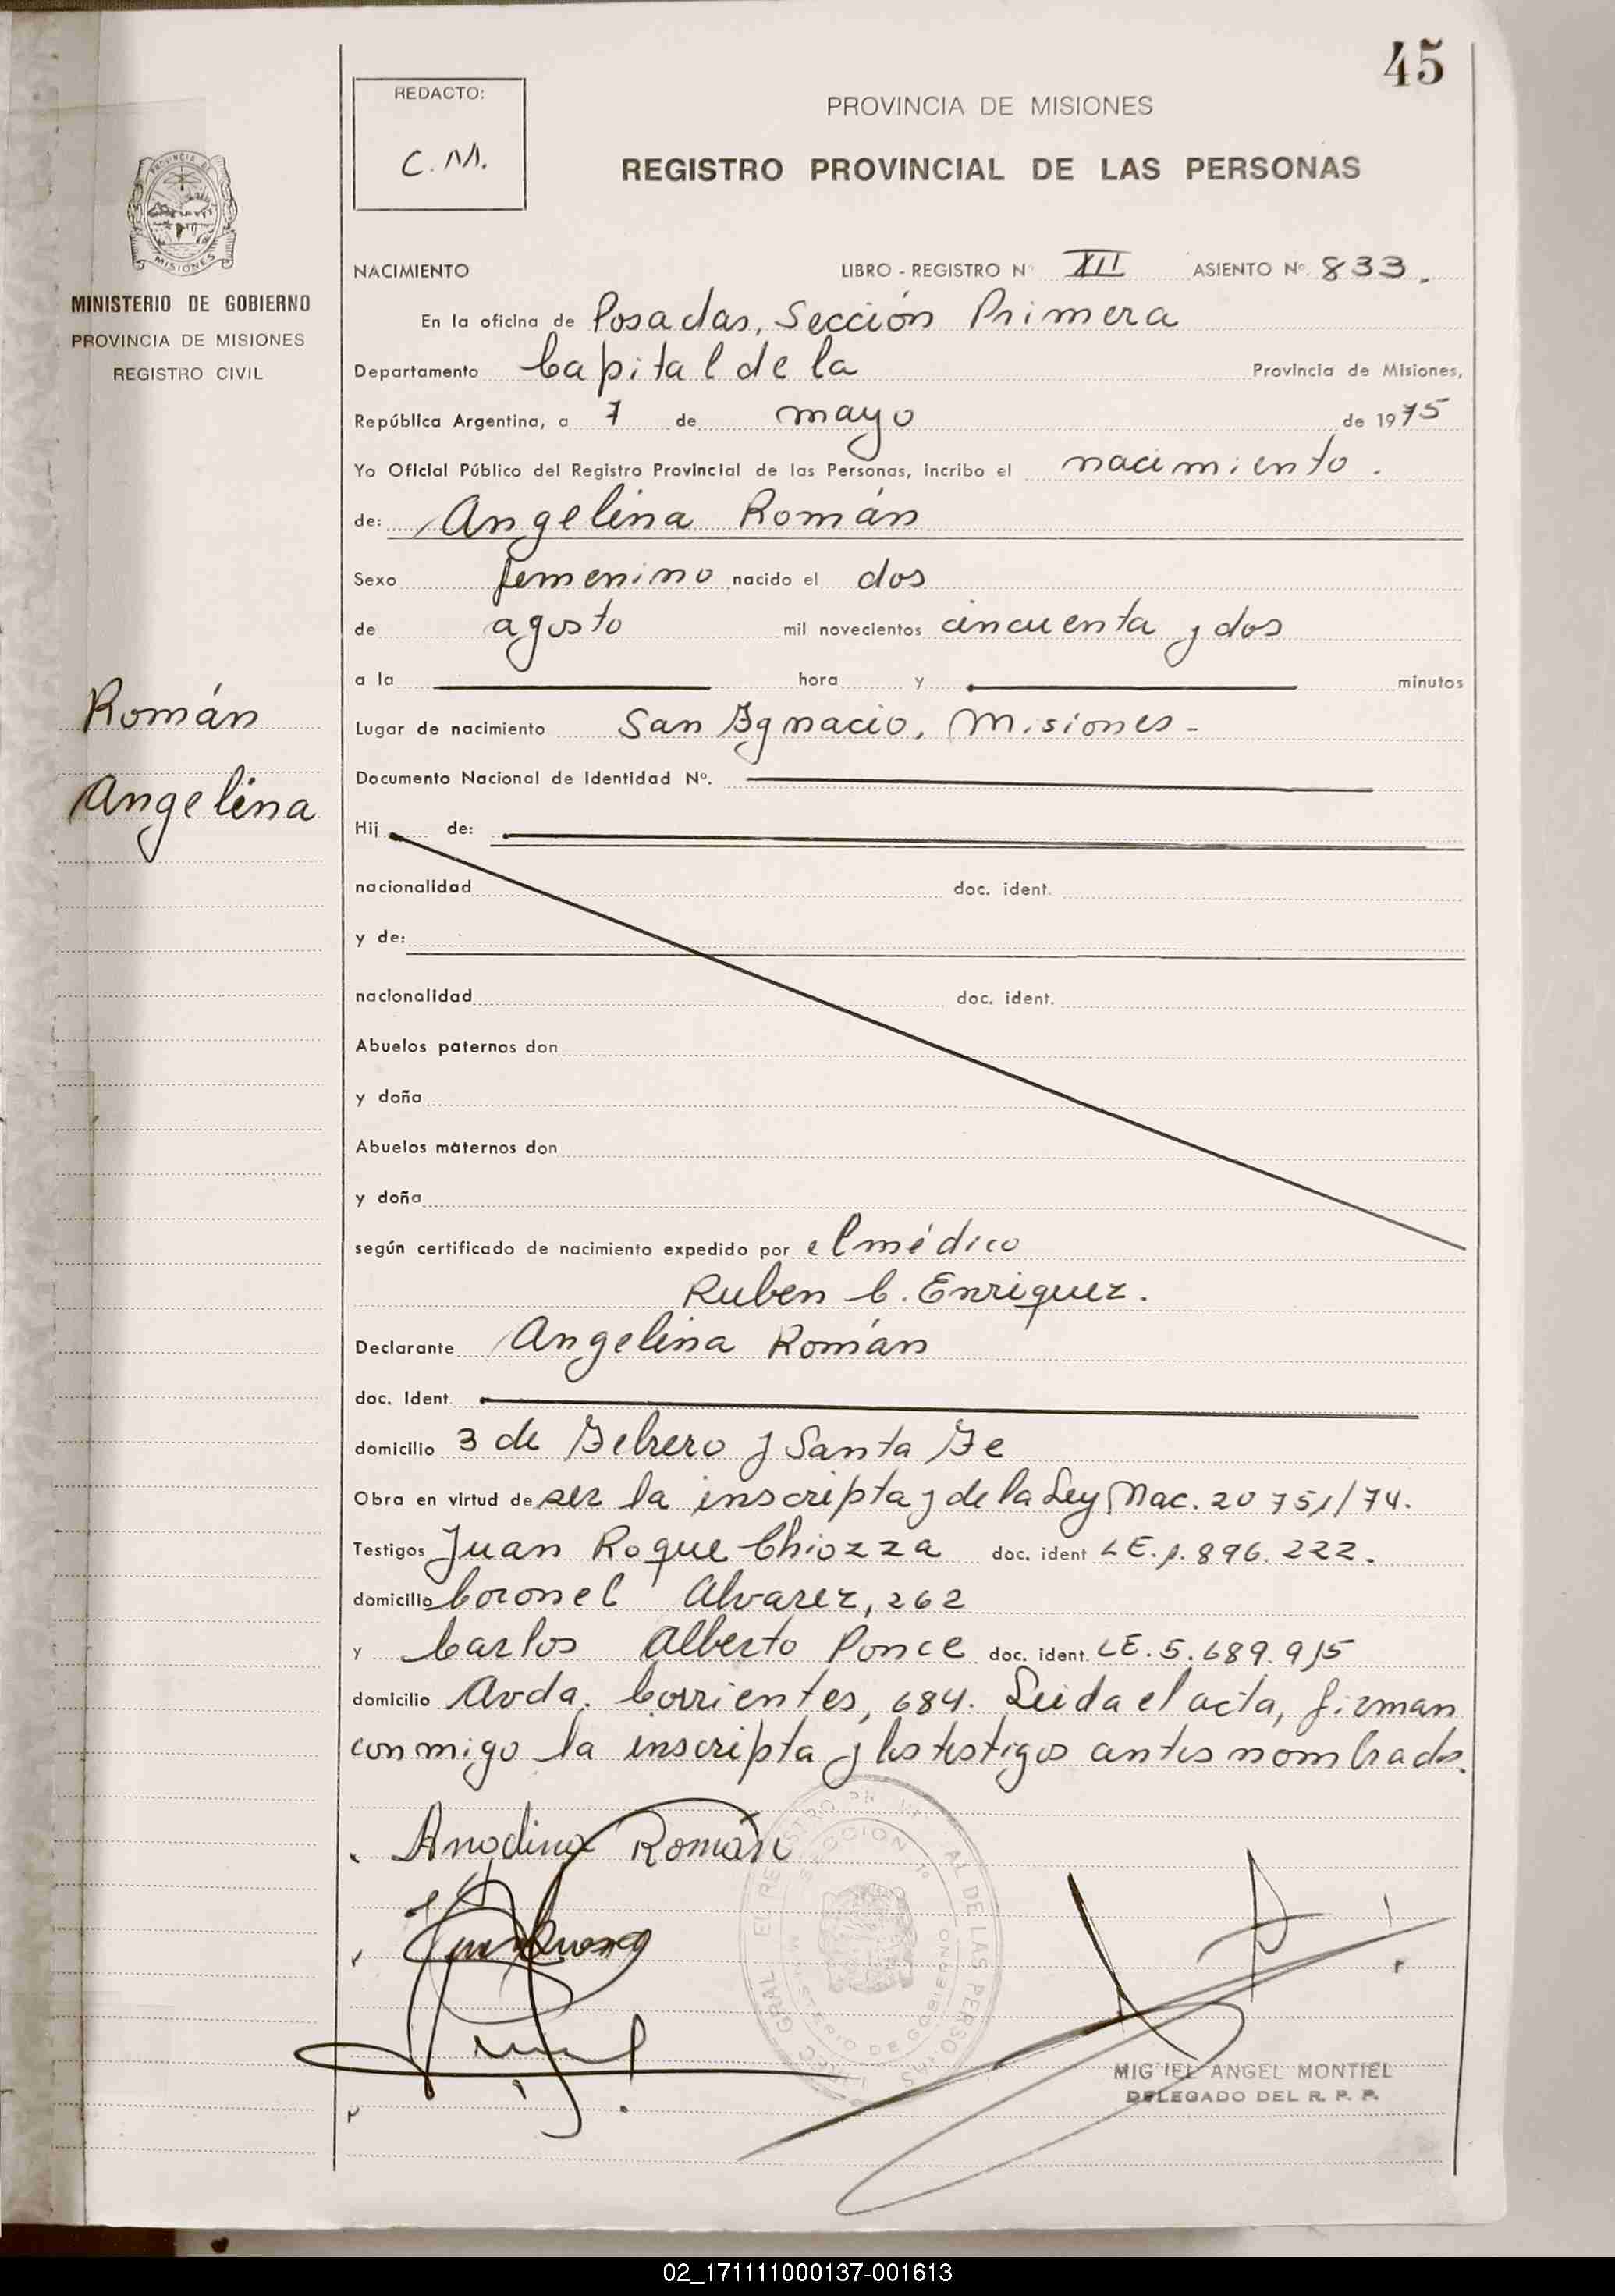 45
REDACTO:
C.M.
PROVINCIA DE MISIONES
REGISTRO PROVINCIAL DE LAS PERSONAS
PROVINCIA DE
MISIONES
MINISTERIO DE GOBIERNO
PROVINCIA DE MISIONES
REGISTRO CIVIL
Román
Angelina
NACIMIENTO LIBRO - REGISTRO N° XII ASIENTO Nº 833.
En la oficina de Posadas, Sección Primera
Departamento Capital de la Provincia de Misiones,
República Argentina, a 7 de mayo de 1975
Yo Oficial Público del Registro Provincial de las Personas, incribo el nacimiento.
de: Angelina Román
Sexo femenino nacido el dos
de agosto mil novecientos cincuenta y dos
a la hora y minutos
Lugar de nacimiento San Ignacio, Misiones-
Documento Nacional de Identidad Nº.
Hij de:
nacionalidad doc. ident.
y de:
nacionalidad doc. ident.
Abuelos paternos don
y doña
Abuelos maternos don
y doña
según certificado de nacimiento expedido por el médico
Ruben C. Enriquez.
Declarante Angelina Román
doc. Ident.
domicilio 3 de Febrero y Santa Fe
Obra en virtud de ser la inscripta y de la Ley Nac. 20751/74.
Testigos Juan Roque Chiozza doc. ident LE.1.896.222.
domicilio Coronel Alvarez, 262
y Carlos Alberto Ponce doc. ident. LE.5.689.915
domicilio Avda. Corrientes, 684. Leida el acta, firman
conmigo la inscripta y los testigos antes nombrados.
Angelina Román
SECCION 1º
MINISTERIO DE GOBIERNO
MIGUEL ANGEL MONTIEL
DELEGADO DEL R. P. P.
02_171111000137-001613